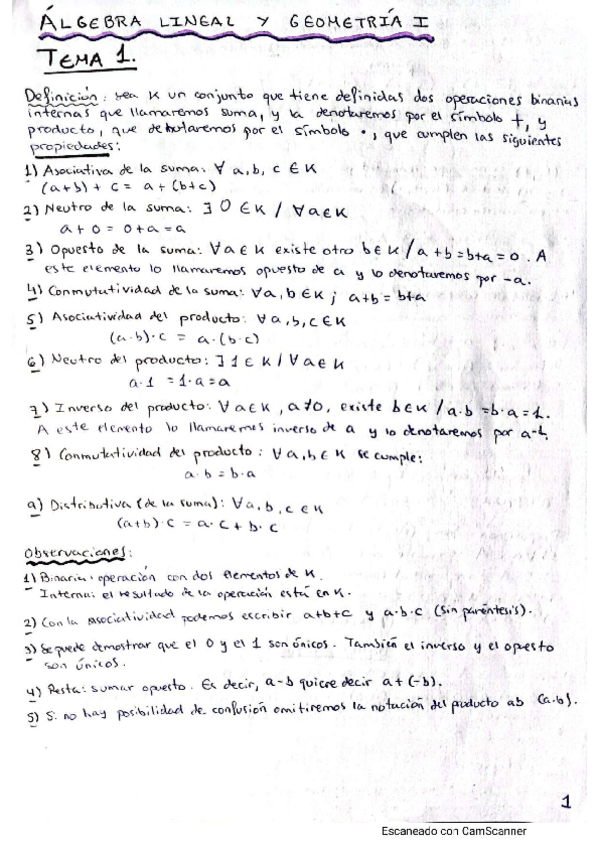 ÁLGEBRA LINEAL Y GEOMETRÍA I
TEMA 1.
Definición: sea K un conjunto que tiene definidas dos operaciones binarias
internas que llamaremos suma, y la denotaremos por el símbolo +, y
producto, que denotaremos por el símbolo ·, que cumplen las siguientes
propiedades:
1) Asociativa de la suma: ∀ a, b, c ∈ K
(a+b) + c = a + (b+c)
2) Neutro de la suma: ∃ 0 ∈ K / ∀a∈K
a + 0 = 0 + a = a
3) Opuesto de la suma: ∀a∈K existe otro b∈K / a + b = b+a = 0. A
este elemento lo llamaremos opuesto de a y lo denotaremos por -a.
4) Conmutatividad de la suma: ∀a, b∈K ; a+b = b+a
5) Asociatividad del producto: ∀a, b, c∈K
(a·b)·c = a·(b·c)
6) Neutro del producto: ∃ 1 ∈ K / ∀a∈K
a·1 = 1·a = a
7) Inverso del producto: ∀a∈K, a≠0, existe b∈K / a·b = b·a = 1.
A este elemento lo llamaremos inverso de a y lo denotaremos por a-1.
8) Conmutatividad del producto: ∀a, b∈K se cumple:
a·b = b·a
9) Distributiva (de la suma): ∀a, b, c ∈ K
(a+b)·c = a·c + b·c
Observaciones:
1) Binaria: operación con dos elementos de K.
Interna: el resultado de la operación está en K.
2) Con la asociatividad podemos escribir a+b+c y a·b·c (sin paréntesis).
3) Se puede demostrar que el 0 y el 1 son únicos. También el inverso y el opuesto
son únicos.
4) Resta: sumar opuesto. Es decir, a-b quiere decir a+(-b).
5) Si no hay posibilidad de confusión omitiremos la notación del producto ab (a·b).
1
Escaneado con CamScanner